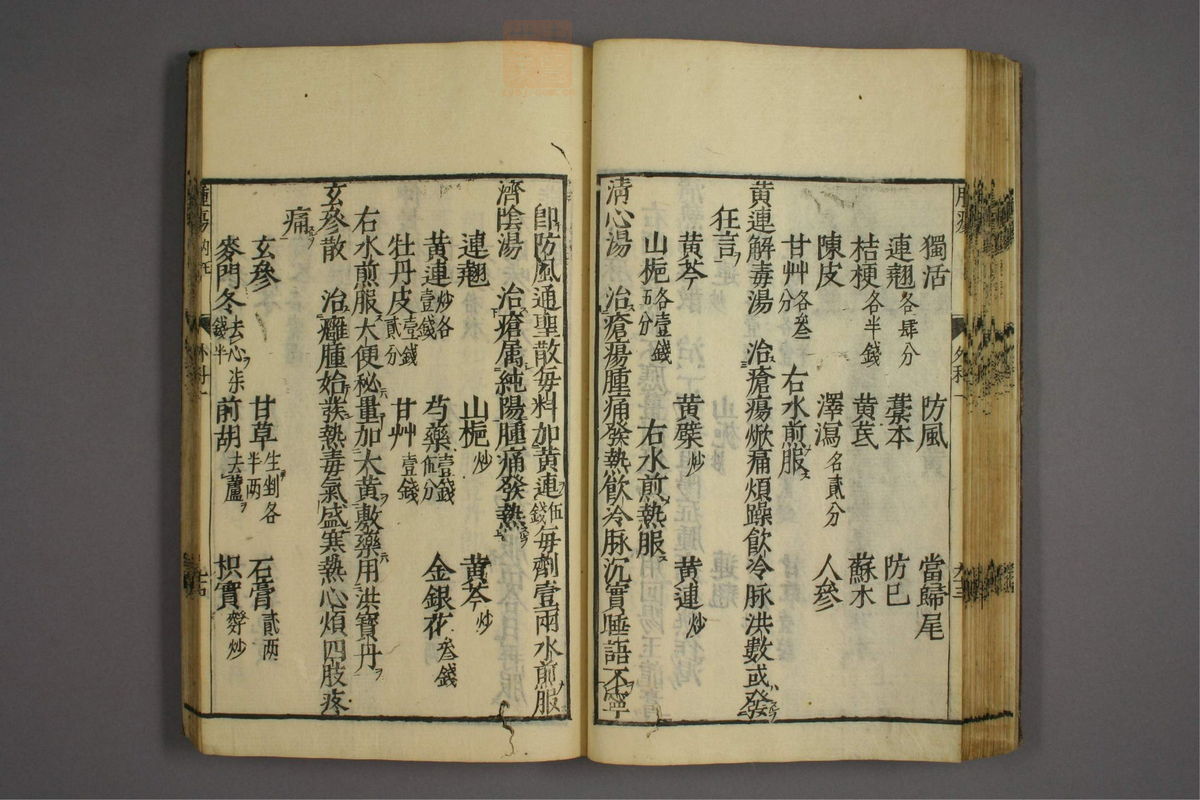 獨活 防風 當歸尾
連翹各肆分 藁本 防已
桔梗各半錢 黄茋 蘇木
陳皮 澤瀉名貳分 人參
甘艸各叁分 右水煎服
黄連解毒湯 治瘡瘍焮痛煩躁飲冷脉洪數或發
狂言
黄芩 黄檗炒 黄連炒
山梔各壹錢五分 右水煎熱服
清心湯 治瘡瘍腫痛發熱飲冷脉沉實睡語不寧
即防風通聖散每料加黄連伍錢每劑壹兩水煎服
濟陰湯 治瘡属純陽腫痛發熱
連翹 山梔炒 黄芩炒
黄連炒各壹錢 芍藥壹錢伍分 金銀花叁錢
牡丹皮壹錢貳分 甘艸壹錢
右水煎服大便秘量加大黄敷藥用洪寶丹
玄參散 治癰腫始發熱毒氣盛寒熱心煩四肢疼
痛
玄參 甘草生剉各半两 石膏貳两
麥門冬去心柒錢半 前胡去蘆 枳實麩炒